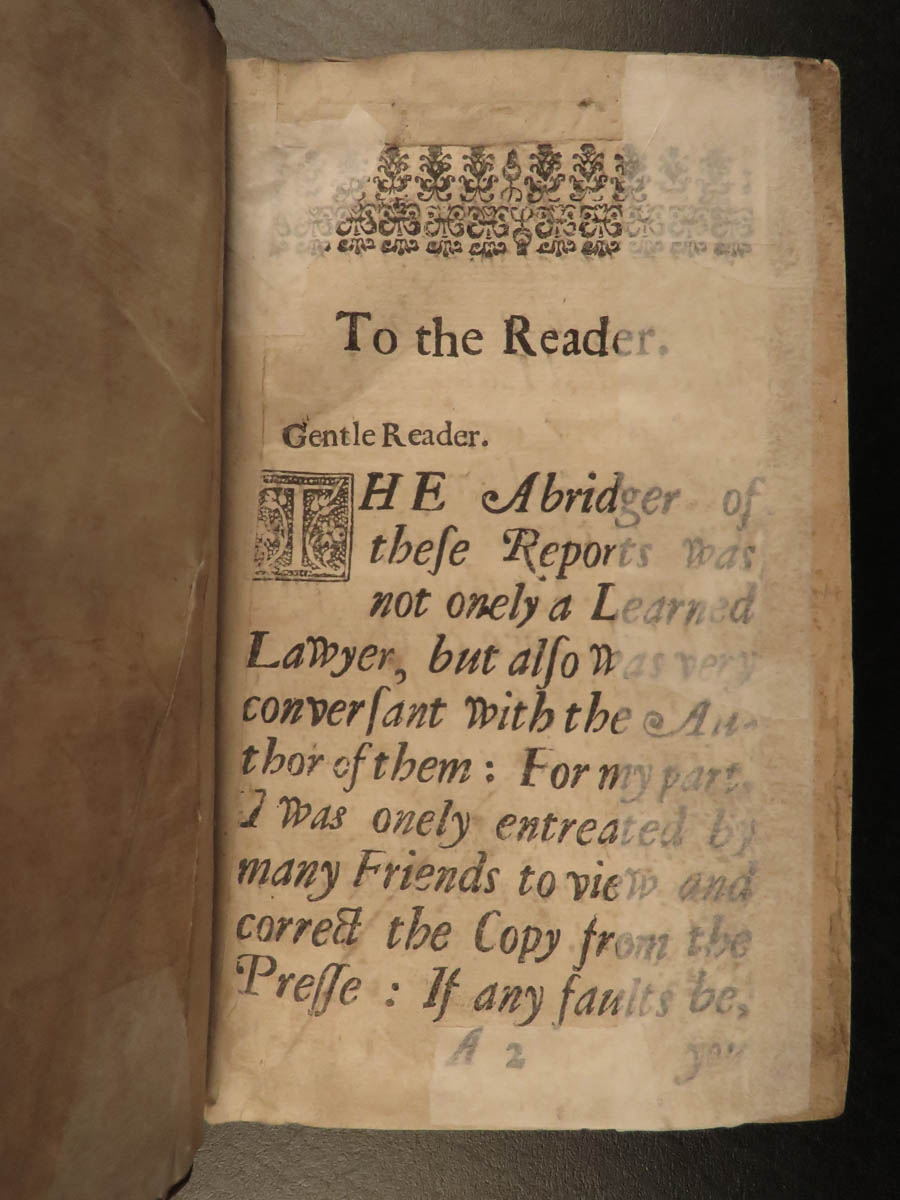 To the Reader.
Gentle Reader.
THE Abridger of
theſe Reports was
not onely a Learned
Lawyer, but alſo was very
converſant with the Au-
thor of them : For my part,
I was onely entreated by
many Friends to view and
correct the Copy from the
Preſſe : If any faults be,
A 2 you